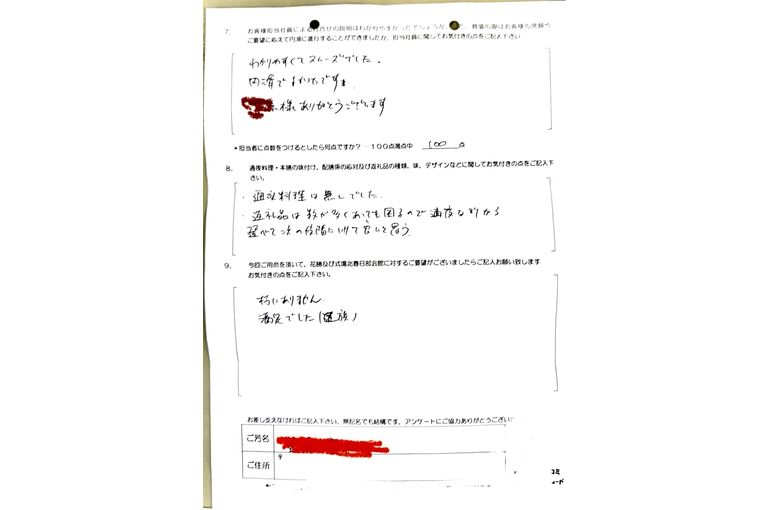 7. お客様担当社員による打合せの説明はわかりやすかったでしょうか 葬儀の際はお客様の依頼や
ご要望に応えて円滑に進行することができましたか、担当社員に関してお気付きの点をご記入下さい
わかりやすくてスムーズでした。
円滑で よかったです。
様 ありがとうございます
*担当者に点数をつけるとしたら何点ですか? ―100点満点中 100 点
8. 通夜料理・本膳の味付け、配膳係の応対及び返礼品の種類、味、デザインなどに関してお気付きの点をご記入下
さい。
・通夜料理は無しでした。
・返礼品は数が多くあっても困るので適度な
選べて次の段階に行て良いと思う。
9. 今回ご用命を頂いて、花勝及び式場北春日部会館に対するご要望がございましたらご記入お願い致します
お気付きの点をご記入下さい。
特にありません。
満足でした(遺族)
お差し支えなければご記入下さい。無記名でも結構です。アンケートにご協力ありがとうござい
ご芳名
ご住所 〒
コミ
ード